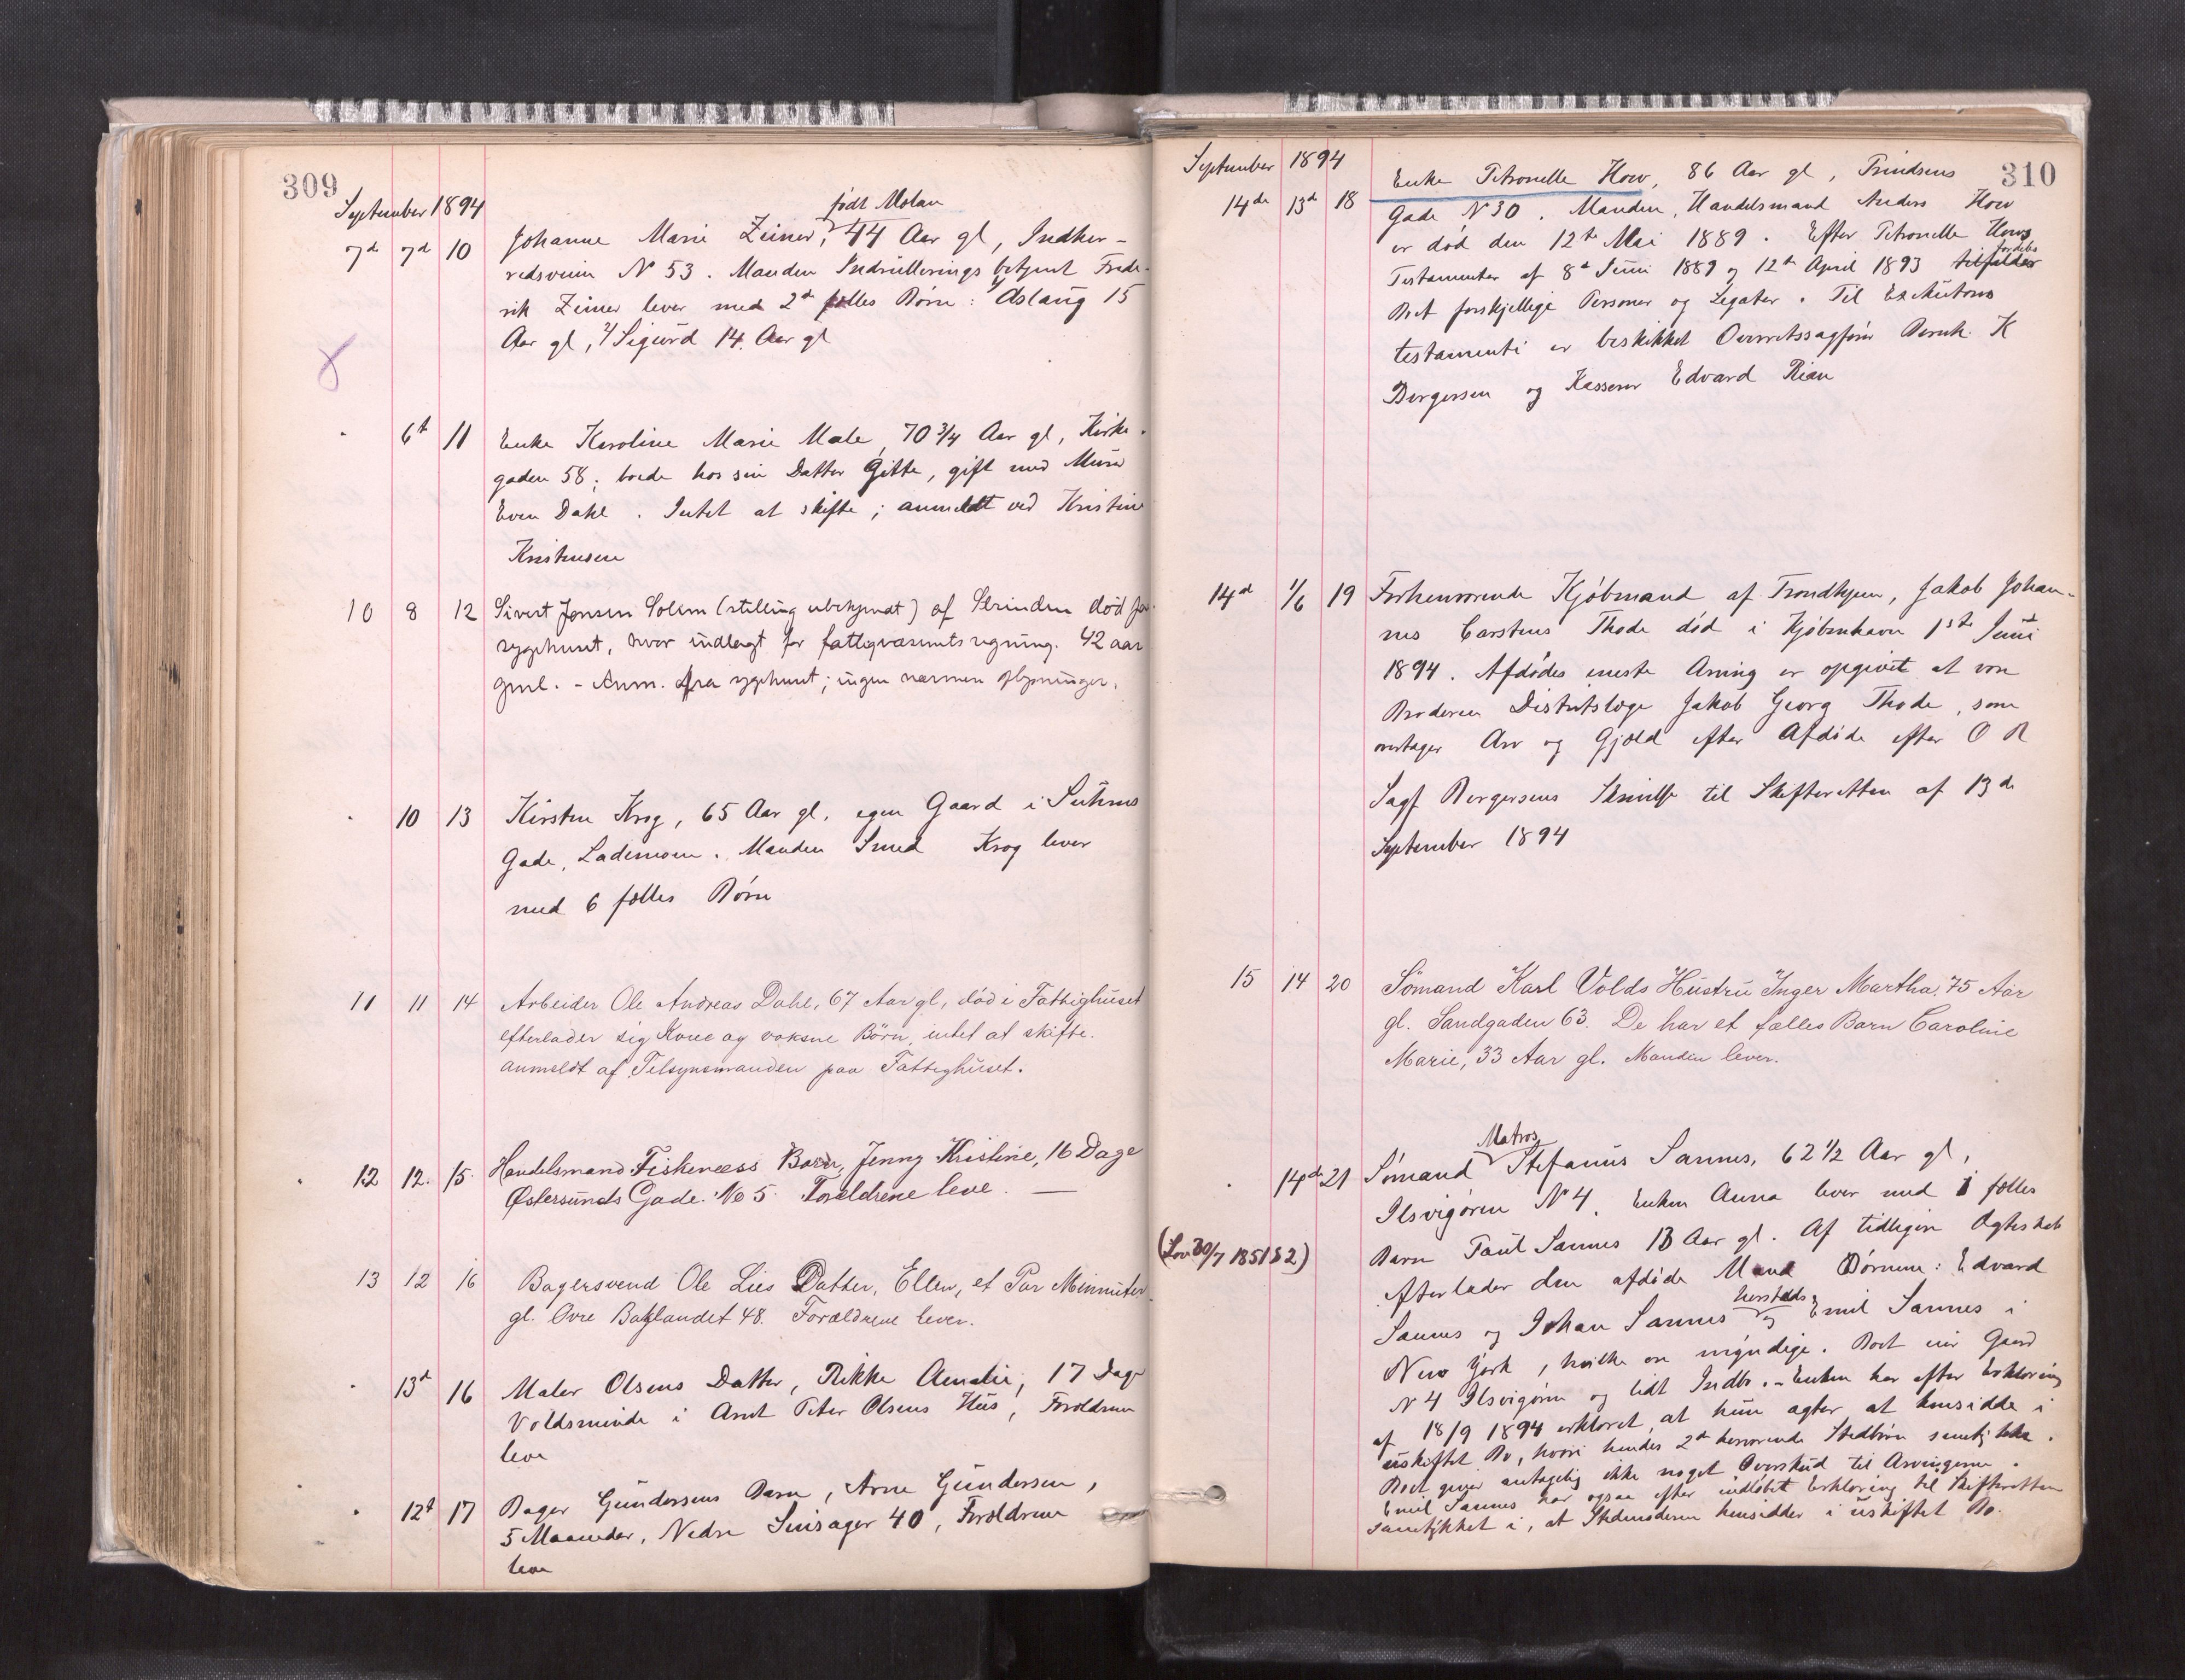 309
September 1894
født Molan
7d 7d 10 Johanne Marie Zeiner, 44 Aar gl, Indher-
redsveien N 53. Manden Indrulleringsbetjent Frede-
rik Zeiner lever med 2de fælles Børn: 1/ Aslaug 15
Aar gl, 2/ Sigurd 14 Aar gl
6t 11 Enke Karoline Marie Male, 70 3/4 Aar gl, Kirke-
gaden 58; boede hos sin Datter Gitte, gift med Murer
Even Dahl. Intet at skifte; anmeldt ved Kristine
Kristensen
10 8 12 Sivert Jensen Solem (stilling ubekjendt) af Strinden død paa
sygehuset, hvor indlagt for fattigvæsenets regning. 42 aar
gml. - Anm. fra sygehuset; ingen nærmere oplysninger.
10 13 Kirsten Krog, 65 Aar gl, egen Gaard i Suhms
Gade, Lademoen. Manden Smed Krog lever
med 6 fælles Børn
11 11 14 Arbeider Ole Andreas Dahl, 67 Aar gl, død i Fattighuset
efterlader sig Kone og voksne Børn, intet at skifte.
anmeldt af Tilsynsmanden paa Fattighuset.
12 12. 15. Handelsmand Fiskenæss Barn, Jenny Kristine, 16 Dage
Østersunds Gade. No 5. Forældrene leve. —
13 12 16 Bagersvend Ole Lies Datter, Ellen, et Par Minnuter
gl. Øvre Baklandet 48. Forældrene lever.
13d 16 Maler Olsens Datter, Rikke Amalie, 17 Dage
Voldsminde i Arnt Peter Olsens Hus, Forældrene
leve
12t 17 Bager Gundersens Barn, Arne Gundersen,
5 Maaneder, Nedre 40, Forældrene
leve
310
September 1894
14de 13d 18 Enke Petronelle How, 86 Aar gl, Trindsens
Gade N 30. Manden, Handelsmand Anders How
er død den 12te Mai 1889. Efter Petronelle Hows
fordeles
Testamenter af 8de Juni 1889 og 12te April 1893 tilfalder
Boet forskjellige Personer og Legater. Til Exekutores
testamenti er beskikket Overretssagfører Bernh. K
Bergersen og Kasserer Edvard Rian
14d 1/6 19 Forhenværende Kjøbmand af Trondhjem, Jakob Johan-
nes Carstens Thode død i Kjøbenhavn 1ste Juni
1894. Afdødes eneste Arving er opgivet at være
Broderen Distriktslæge Jakob Georg Thode, som
overtager Arv og Gjæld efter Afdøde efter O R
Sagf Bergersens Skrivelse til Skifteretten af 13de
September 1894
15 14 20 Sømand Karl Volds Hustru Inger Martha, 75 Aar
gl. Sandgaden 63. De har et fælles Barn Caroline
Marie, 33 Aar gl. Manden lever.
Matros
14de 21 Sømand Stefanus Sannes, 62 1/2 Aar gl,
Ilsvigøren N 4. Enken Anna lever med 1 fælles
Barn Paul Sannes 13 Aar gl. Af tidligere Ægteskab
(Lov 30/7 1851 § 2)
efterlader den afdøde Mand Børnene: Edvard
hersteds
Sannes og Johan Sannes og Emil Sannes i
New York, hvilke ere myndige. Boet eier Gaard
N 4 Ilsvigøren og lidt Indbo. - Enken har efter Erklæring
af 18/9 1894 erklæret, at hun agter at hensidde i
uskiftet Bo, hvori hendes 2de herværende Stedbørn samtykke.
Boet giver antagelig ikke noget Overskud til Arvingerne.
Emil Sannes har ogsaa efter indløbet Erklæring til Skifteretten
samtykket i, at Stedmoderen hensidder i uskiftet Bo.